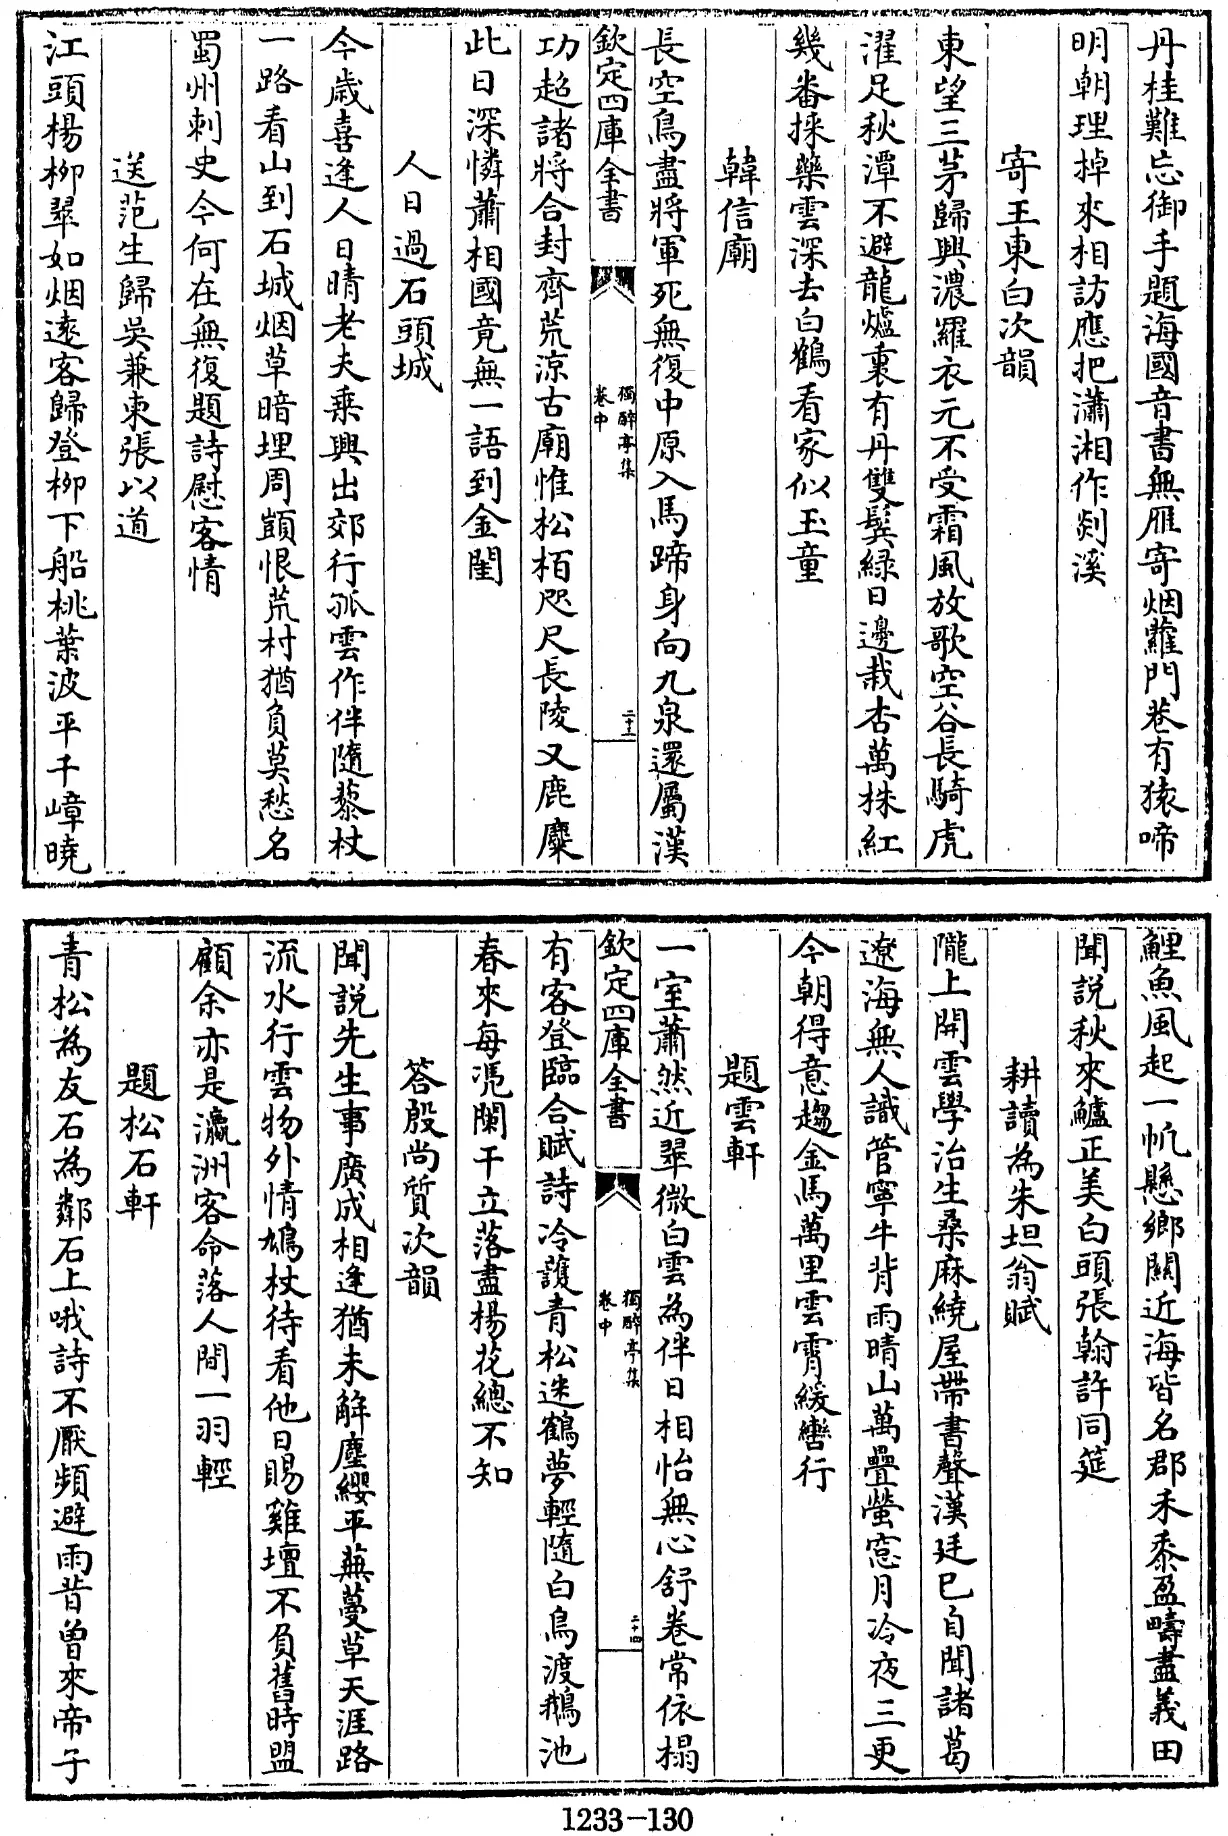 丹桂難忘御手題海國音書無雁寄烟蘿門巷有猿啼
明朝理棹來相訪應把瀟湘作剡溪
寄王東白次韻
東望三茅歸興濃羅衣元不受霜風放歌空谷長騎虎
濯足秋潭不避龍爐裏有丹雙鬂緑日邊栽杏萬株紅
幾番採藥雲深去白鶴看家似玉童
韓信廟
長空鳥盡將軍死無復中原入馬蹄身向九泉還屬漢
欽定四庫全書
獨醉亭集
卷中
二十三
功超諸將合封齊荒涼古廟惟松栢咫尺長陵又鹿麋
此日深憐蕭相國竟無一語到金閨
人日過石頭城
今歲喜逢人日晴老夫乘興出郊行孤雲作伴隨藜杖
一路看山到石城烟草暗埋周顗恨荒村猶負莫愁名
蜀州刺史今何在無復題詩慰客情
送范生歸吳兼柬張以道
江頭楊柳翠如烟逺客歸登柳下船桃葉波平千嶂曉
鯉魚風起一帆懸鄉闗近海皆名郡禾黍盈疇盡義田
聞説秋來鱸正美白頭張翰許同筵
耕讀為朱坦翁賦
隴上開雲學治生桑麻繞屋帶書聲漢廷已自聞諸葛
遼海無人識管寧牛背雨晴山萬疊螢窓月冷夜三更
今朝得意趨金馬萬里雲霄緩轡行
題雲軒
一室蕭然近翠微白雲為伴日相怡無心舒卷常依榻
欽定四庫全書
獨醉亭集
卷中
二十四
有客登臨合賦詩冷護青松迷鶴夢輕隨白鳥渡鵝池
春來每凴闌干立落盡楊花總不知
答殷尚質次韻
聞説先生事廣成相逢猶未解塵纓平蕪蔓草天涯路
流水行雲物外情鳩杖待看他日賜雞壇不負舊時盟
顧余亦是瀛洲客命落人間一羽輕
題松石軒
青松為友石為鄰石上哦詩不厭頻避雨昔曽來帝子
1233-130